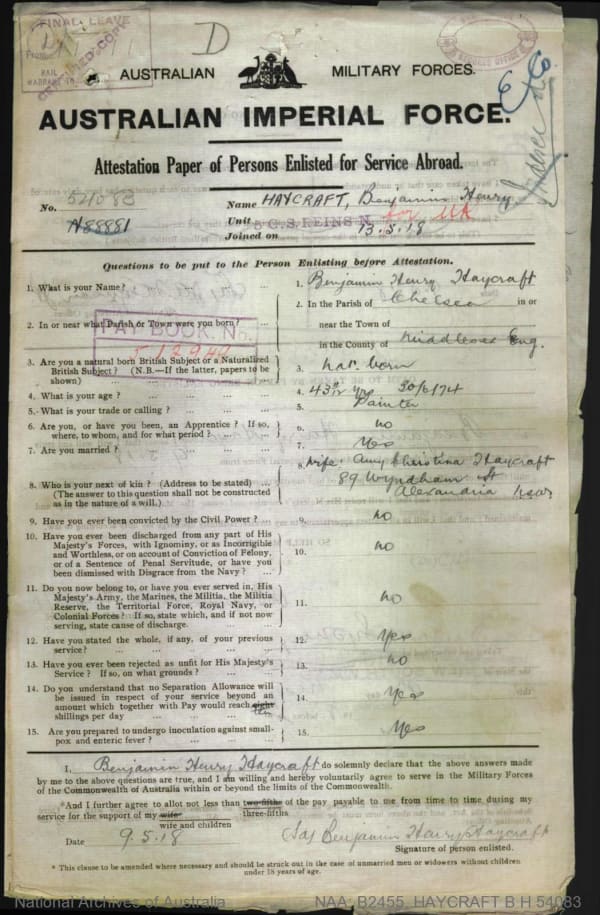 FINAL LEAVE
From
RAIL
WARRANT TO
CERTIFIED COPY
D
AUSTRALIAN MILITARY FORCES.
AUSTRALIAN IMPERIAL FORCE.
Attestation Paper of Persons Enlisted for Service Abroad.
No.
N88881
Name HAYCRAFT, Benjamin Henry
Unit 5 G.S. REINS N. for UK
Joined on 13.5.18
Questions to be put to the Person Enlisting before Attestation.
1. What is your Name? ... ... ... 1. Benjamin Henry Haycraft
2. In or near what Parish or Town were you born? ... 2. In the Parish of Chelsea in or
near the Town of
in the County of Middlesex Eng.
PAY BOOK, No.
3. Are you a natural born British Subject or a Naturalized
British Subject? (N.B.—If the latter, papers to be
shown) ... ... ... 3. Nat. born
4. What is your age? ... ... ... 4. 43 yrs
5. What is your trade or calling? ... ... 5. Painter
6. Are you, or have you been, an Apprentice? If so,
where, to whom, and for what period? ... 6. no
7. Are you married? ... ... ... 7. Yes
8. Who is your next of kin? (Address to be stated) ...
(The answer to this question shall not be constructed
as in the nature of a will.)
8. Wife Amy Christina Haycraft
89 Wyndham St
Alexandria NSW
9. Have you ever been convicted by the Civil Power? ... 9. no
10. Have you ever been discharged from any part of His
Majesty's Forces, with Ignominy, or as Incorrigible
and Worthless, or on account of Conviction of Felony,
or of a Sentence of Penal Servitude, or have you
been dismissed with Disgrace from the Navy? ... 10. no
11. Do you now belong to, or have you ever served in, His
Majesty's Army, the Marines, the Militia, the Militia
Reserve, the Territorial Force, Royal Navy, or
Colonial Forces? If so, state which, and if not now
serving, state cause of discharge. 11. no
12. Have you stated the whole, if any, of your previous
service? ... ... ... 12. Yes
13. Have you ever been rejected as unfit for His Majesty's
Service? If so, on what grounds? ... 13. no
14. Do you understand that no Separation Allowance will
be issued in respect of your service beyond an
amount which together with Pay would reach eight
ten
shillings per day ... ... 14. Yes
15. Are you prepared to undergo inoculation against small-
pox and enteric fever? ... ... 15. Yes
I, Benjamin Henry Haycraft do solemnly declare that the above answers made
by me to the above questions are true, and I am willing and hereby voluntarily agree to serve in the Military Forces
of the Commonwealth of Australia within or beyond the limits of the Commonwealth.
*And I further agree to allot not less than two-fifths of the pay payable to me from time to time during my
three-fifths
service for the support of my wife
wife and children
Date 9.5.18
Sgd Benjamin Henry Haycraft
Signature of person enlisted.
* This clause to be amended where necessary and should be struck out in the case of unmarried men or widowers without children
under 18 years of age.
National Archives of Australia NAA: B2455, HAYCRAFT B H 54083